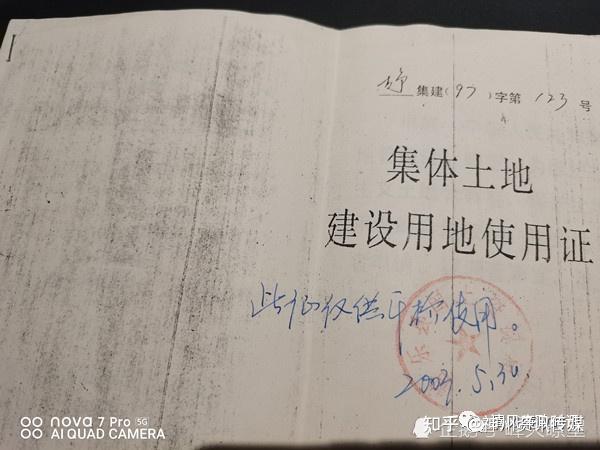 集建(97)字第123号
集体土地
建设用地使用证
此证仅供年检使用。
2003.5.30.
nova 7 Pro 5G
AI QUAD CAMERA
知乎